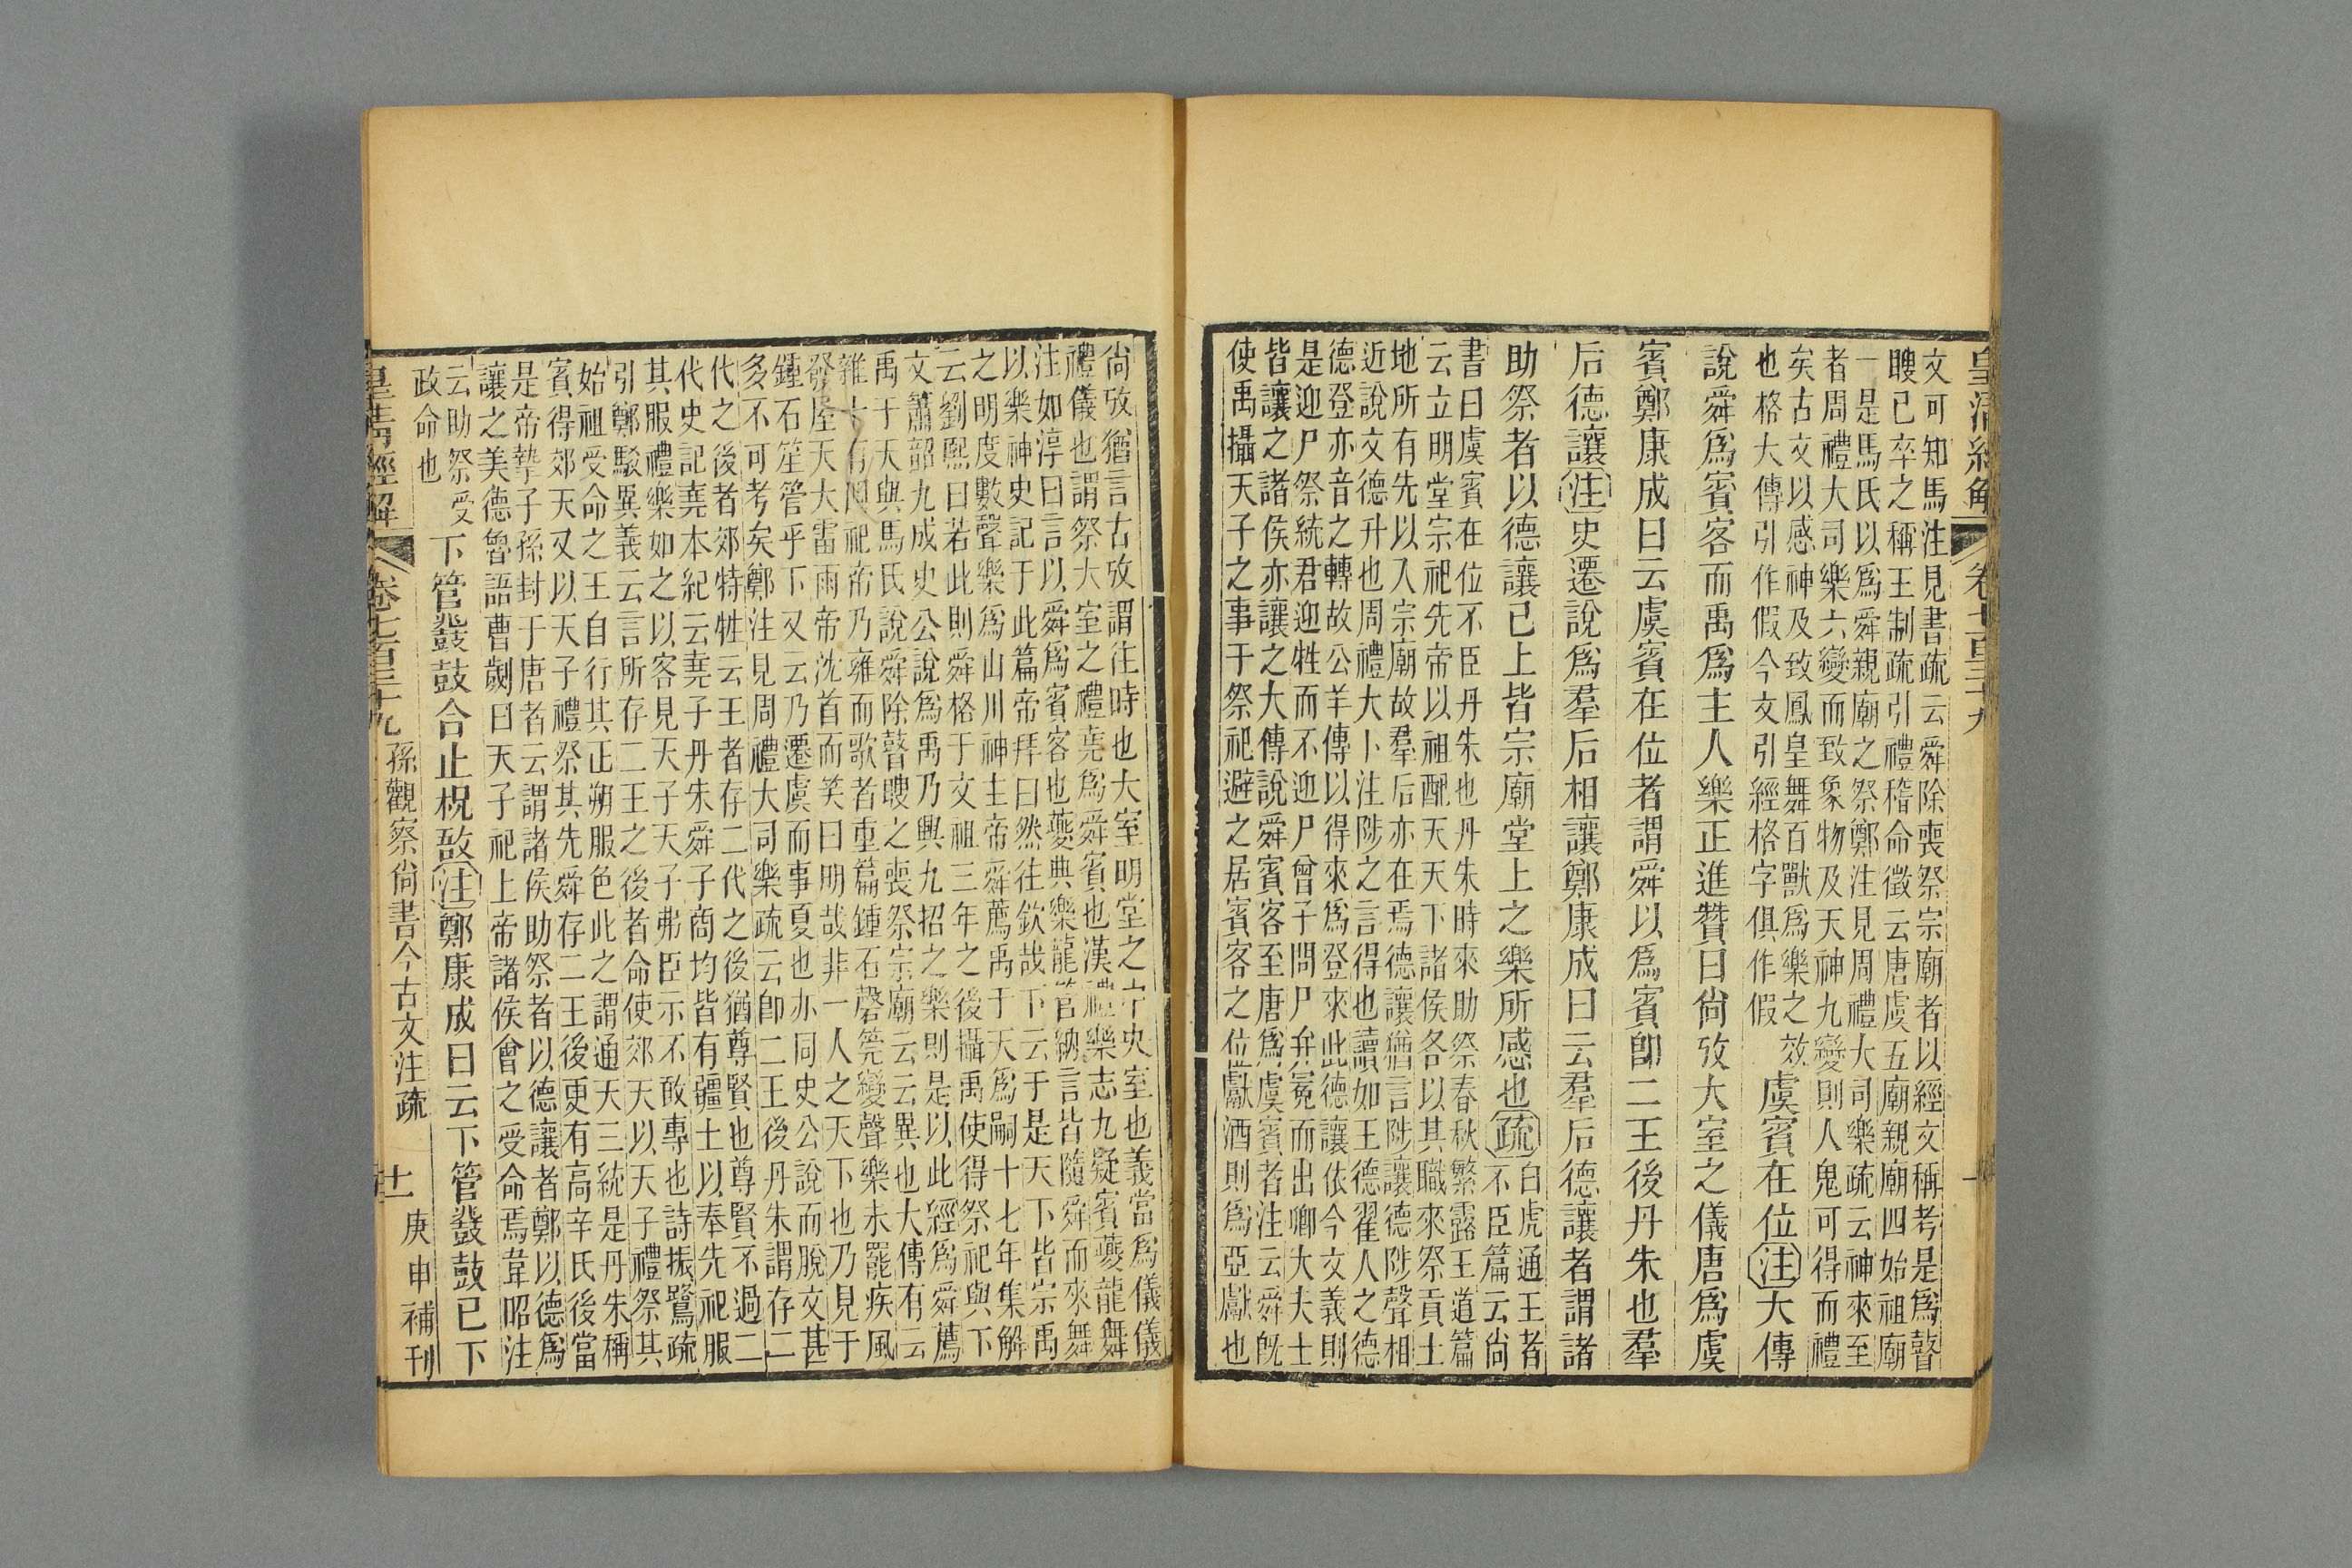 皇清經解
卷七百三十九
文可知馬注見書疏云舜除喪祭宗廟者以經文稱考是爲瞽
瞍已卒之稱王制疏引禮稽命徵云唐虞五廟親廟四始祖廟
一是馬氏以爲舜親廟之祭鄭注見周禮大司樂疏云神來至
者周禮大司樂六變而致象物及天神九變則人鬼可得而禮
矣古文以感神及致鳳皇舞百獸爲樂之效
也格大傳引作假今文引經格字俱作假
虞賓在位注大傳
說舜爲賓客而禹爲主人樂正進贊曰尚攷大室之儀唐爲虞
賓鄭康成曰云虞賓在位者謂舜以爲賓卽二王後丹朱也羣
后德讓注史遷說爲羣后相讓鄭康成曰云羣后德讓者謂諸
助祭者以德讓已上皆宗廟堂上之樂所感也疏
白虎通王者
不臣篇云尚
書曰虞賓在位不臣丹朱也丹朱時來助祭春秋繁露王道篇
云立明堂宗祀先帝以祖配天天下諸侯各以其職來祭貢土
地所有先以入宗廟故羣后亦在焉德讓猶言陟讓德陟聲相
近說文德升也周禮大卜注陟之言得也讀如王德翟人之德
德登亦音之轉故公羊傳以得來爲登來此德讓依今文義則
是迎尸祭統君迎牲而不迎尸曾子問尸弁冕而出卿大夫士
皆讓之諸侯亦讓之大傳說舜賓客至唐爲虞賓者注云舜旣
使禹攝天子之事于祭祀避之居賓客之位獻酒則爲亞獻也
尚攷猶言古攷謂往時也大室明堂之中央室也義當爲儀儀
禮儀也謂祭大室之禮堯爲舜賓也漢禮樂志九疑賓夔龍舞
注如淳曰言以舜爲賓客也夔典樂龍管納言皆隨舜而來舞
以樂神史記于此篇帝拜曰然往欽哉下云于是天下皆宗禹
之明度數聲樂爲山川神主帝舜薦禹于天爲嗣十七年集解
云劉熙曰若此則舜格于文祖三年之後攝禹使得祭祀與下
文簫韶九成史公說爲禹乃興九招之樂則是以此經爲舜薦
禹于天與馬氏說舜除瞽瞍之喪祭宗廟云云異也大傳有云
維十有四祀帝乃雍而歌者重篇鍾石磬筦變聲樂未罷疾風
發屋天大雷雨帝沈首而笑曰明哉非一人之天下也乃見于
鍾石笙管乎下又云乃遷虞而事夏也亦同史公說而脫文甚
多不可考矣鄭注見周禮大司樂疏云卽二王後丹朱謂存二
代之後者郊特牲云王者存二代之後猶尊賢也尊賢不過二
代史記堯本紀云堯子丹朱舜子商均皆有疆土以奉先祀服
其服禮樂如之以客見天子天子弗臣示不敢專也詩振鷺疏
引鄭駁異義云言所存二王之後者命使郊天以天子禮祭其
始祖受命之王自行其正朔服色此之謂通天三統是丹朱稱
賓得郊天又以天子禮祭其先舜存二王後更有高辛氏後當
是帝摯子孫封于唐者云謂諸侯助祭者以德讓者鄭以德爲
讓之美德魯語曹劌曰天子祀上帝諸侯會之受命焉韋昭注
云助祭受
政命也
下管鼗鼓合止柷敔注鄭康成曰云下管鼗鼓已下
皇清經解
卷七百三十九
孫觀察尚書今古文注疏
十一
庚申補刊